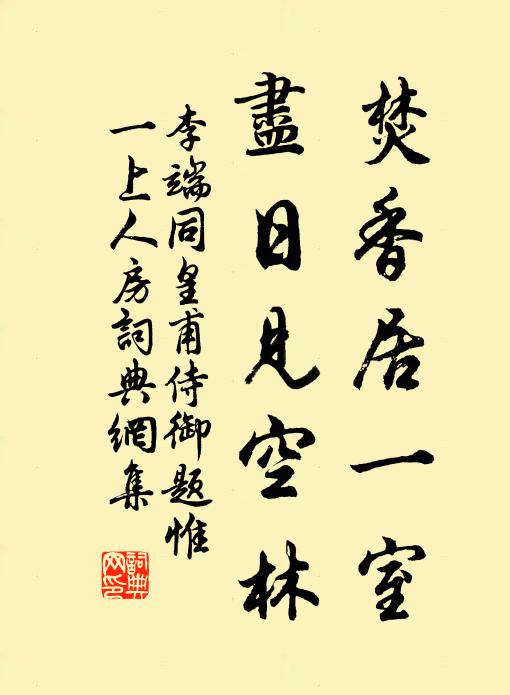 焚香居一室
盡日見空林
李端同皇甫侍御題惟
一上人房詞典網集
詞典
网印